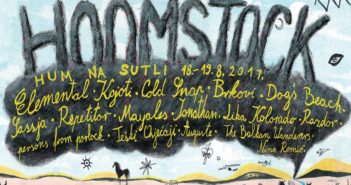 HOOMSTOCK
HUM NA SUTLI 18-19.8.2017.
Elemental · Kojoti · Cold Snap · Brkovi · Dog's Beach.
Sassja · Repetitor · Mayales · Jonathan · Lika Kolorado · Razdor ·
persons from porlock · Teški Osjećaji · Auguste · The Balkan Wanderers ·
Nina Romić.